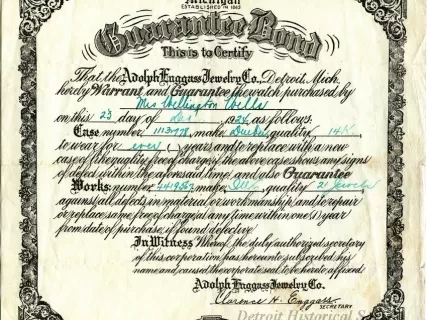 Michigan
ESTABLISHED IN 1865
Guarantee Bond
This is to Certify
That the Adolph Enggass Jewelry Co., Detroit, Mich.
hereby Warrant and Guarantee the watch purchased by
Mrs Wellington Wells
on this 23 day of Dec 1926 as follows:
Case number 1113778, make Dueber, quality 14K
to wear for ever ( ) years and to replace with a new
case of like quality free of charge if the above case shows any signs
of defect within the aforesaid time, and also Guarantee
Works: number make Ill, quality 21 Jewels
against all defects in material or workmanship and to repair
or replace same free of charge at any time within one (1) year
from date of purchase if found defective
In Witness Whereof the duly authorized secretary
of this corporation has hereunto subscribed his
name and caused the corporate seal to be hereto affixed.
Adolph Enggass Jewelry Co.
Clarence H. Enggass
SECRETARY
Detroit Historical S